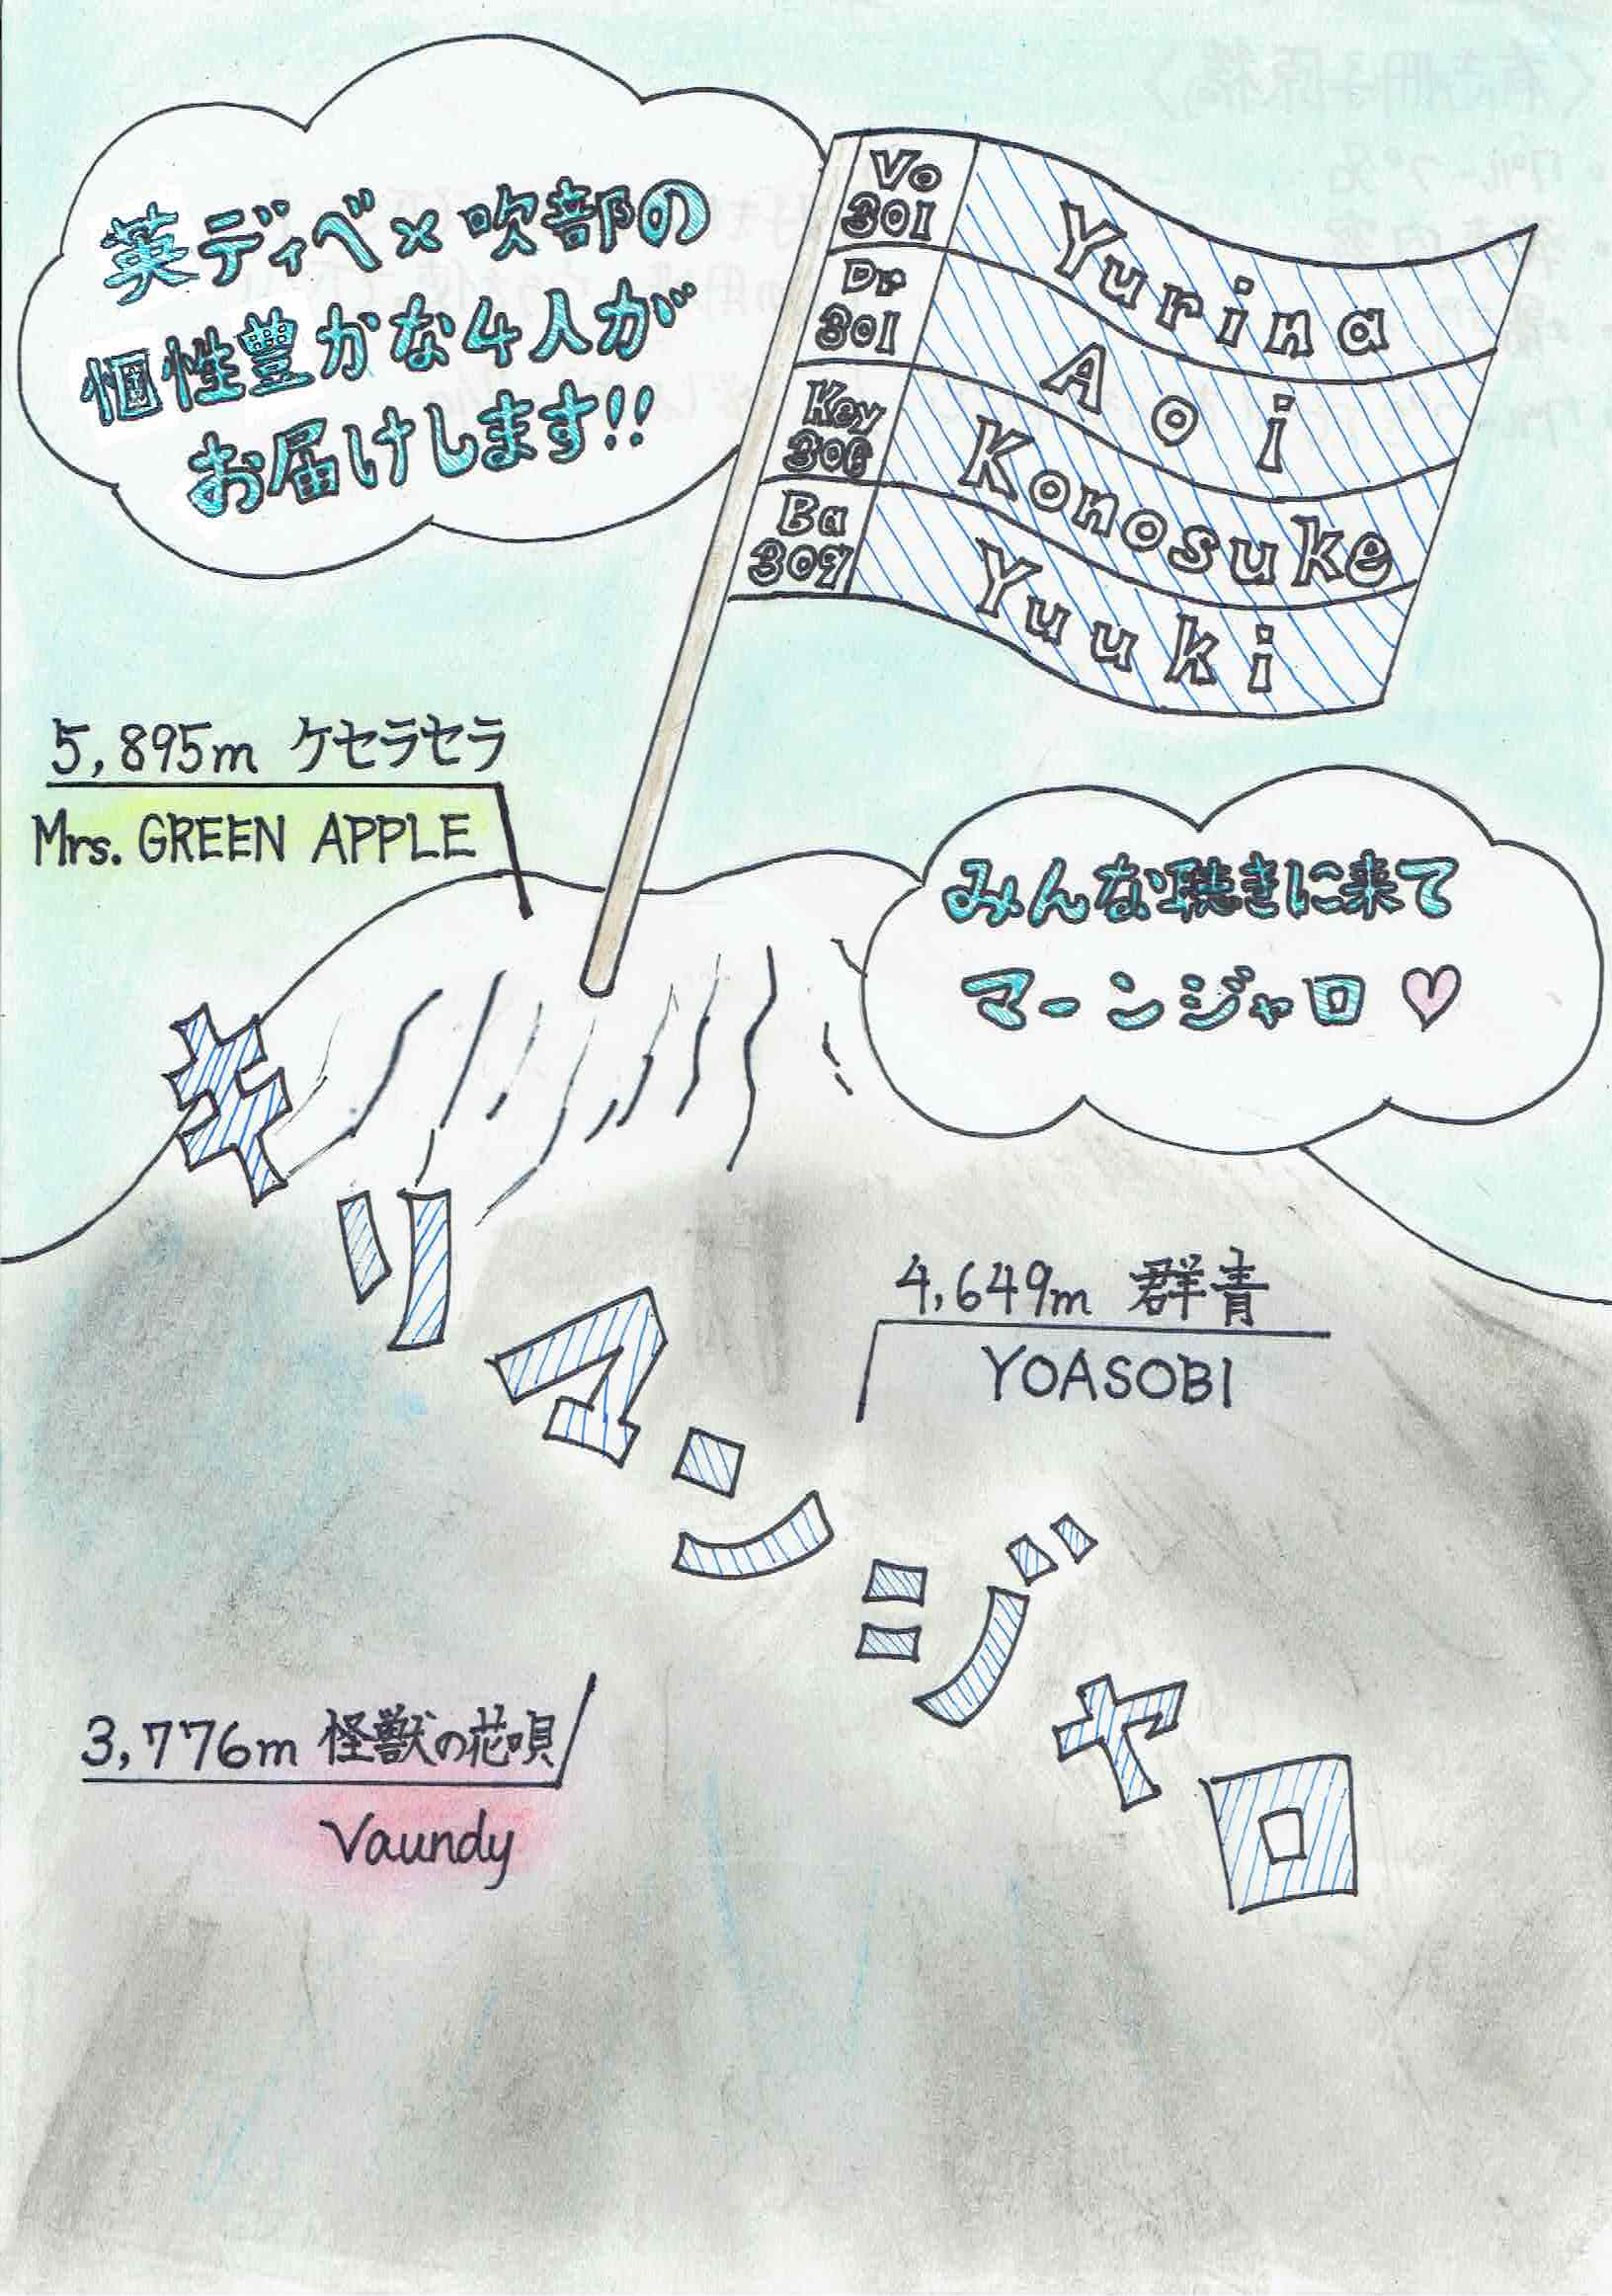 英ディベ×吹部の
個性豊かな4人が
お届けします!!
Vo
301
Yurina
Dr
301
Aoi
Key
306
Konosuke
Ba
309
Yuuki
5,895m ケセラセラ
Mrs. GREEN APPLE
みんな聴きに来て
マーンジャロ♡
キリマンジャロ
4,649m 群青
YOASOBI
3,776m 怪獣の花唄
Vaundy